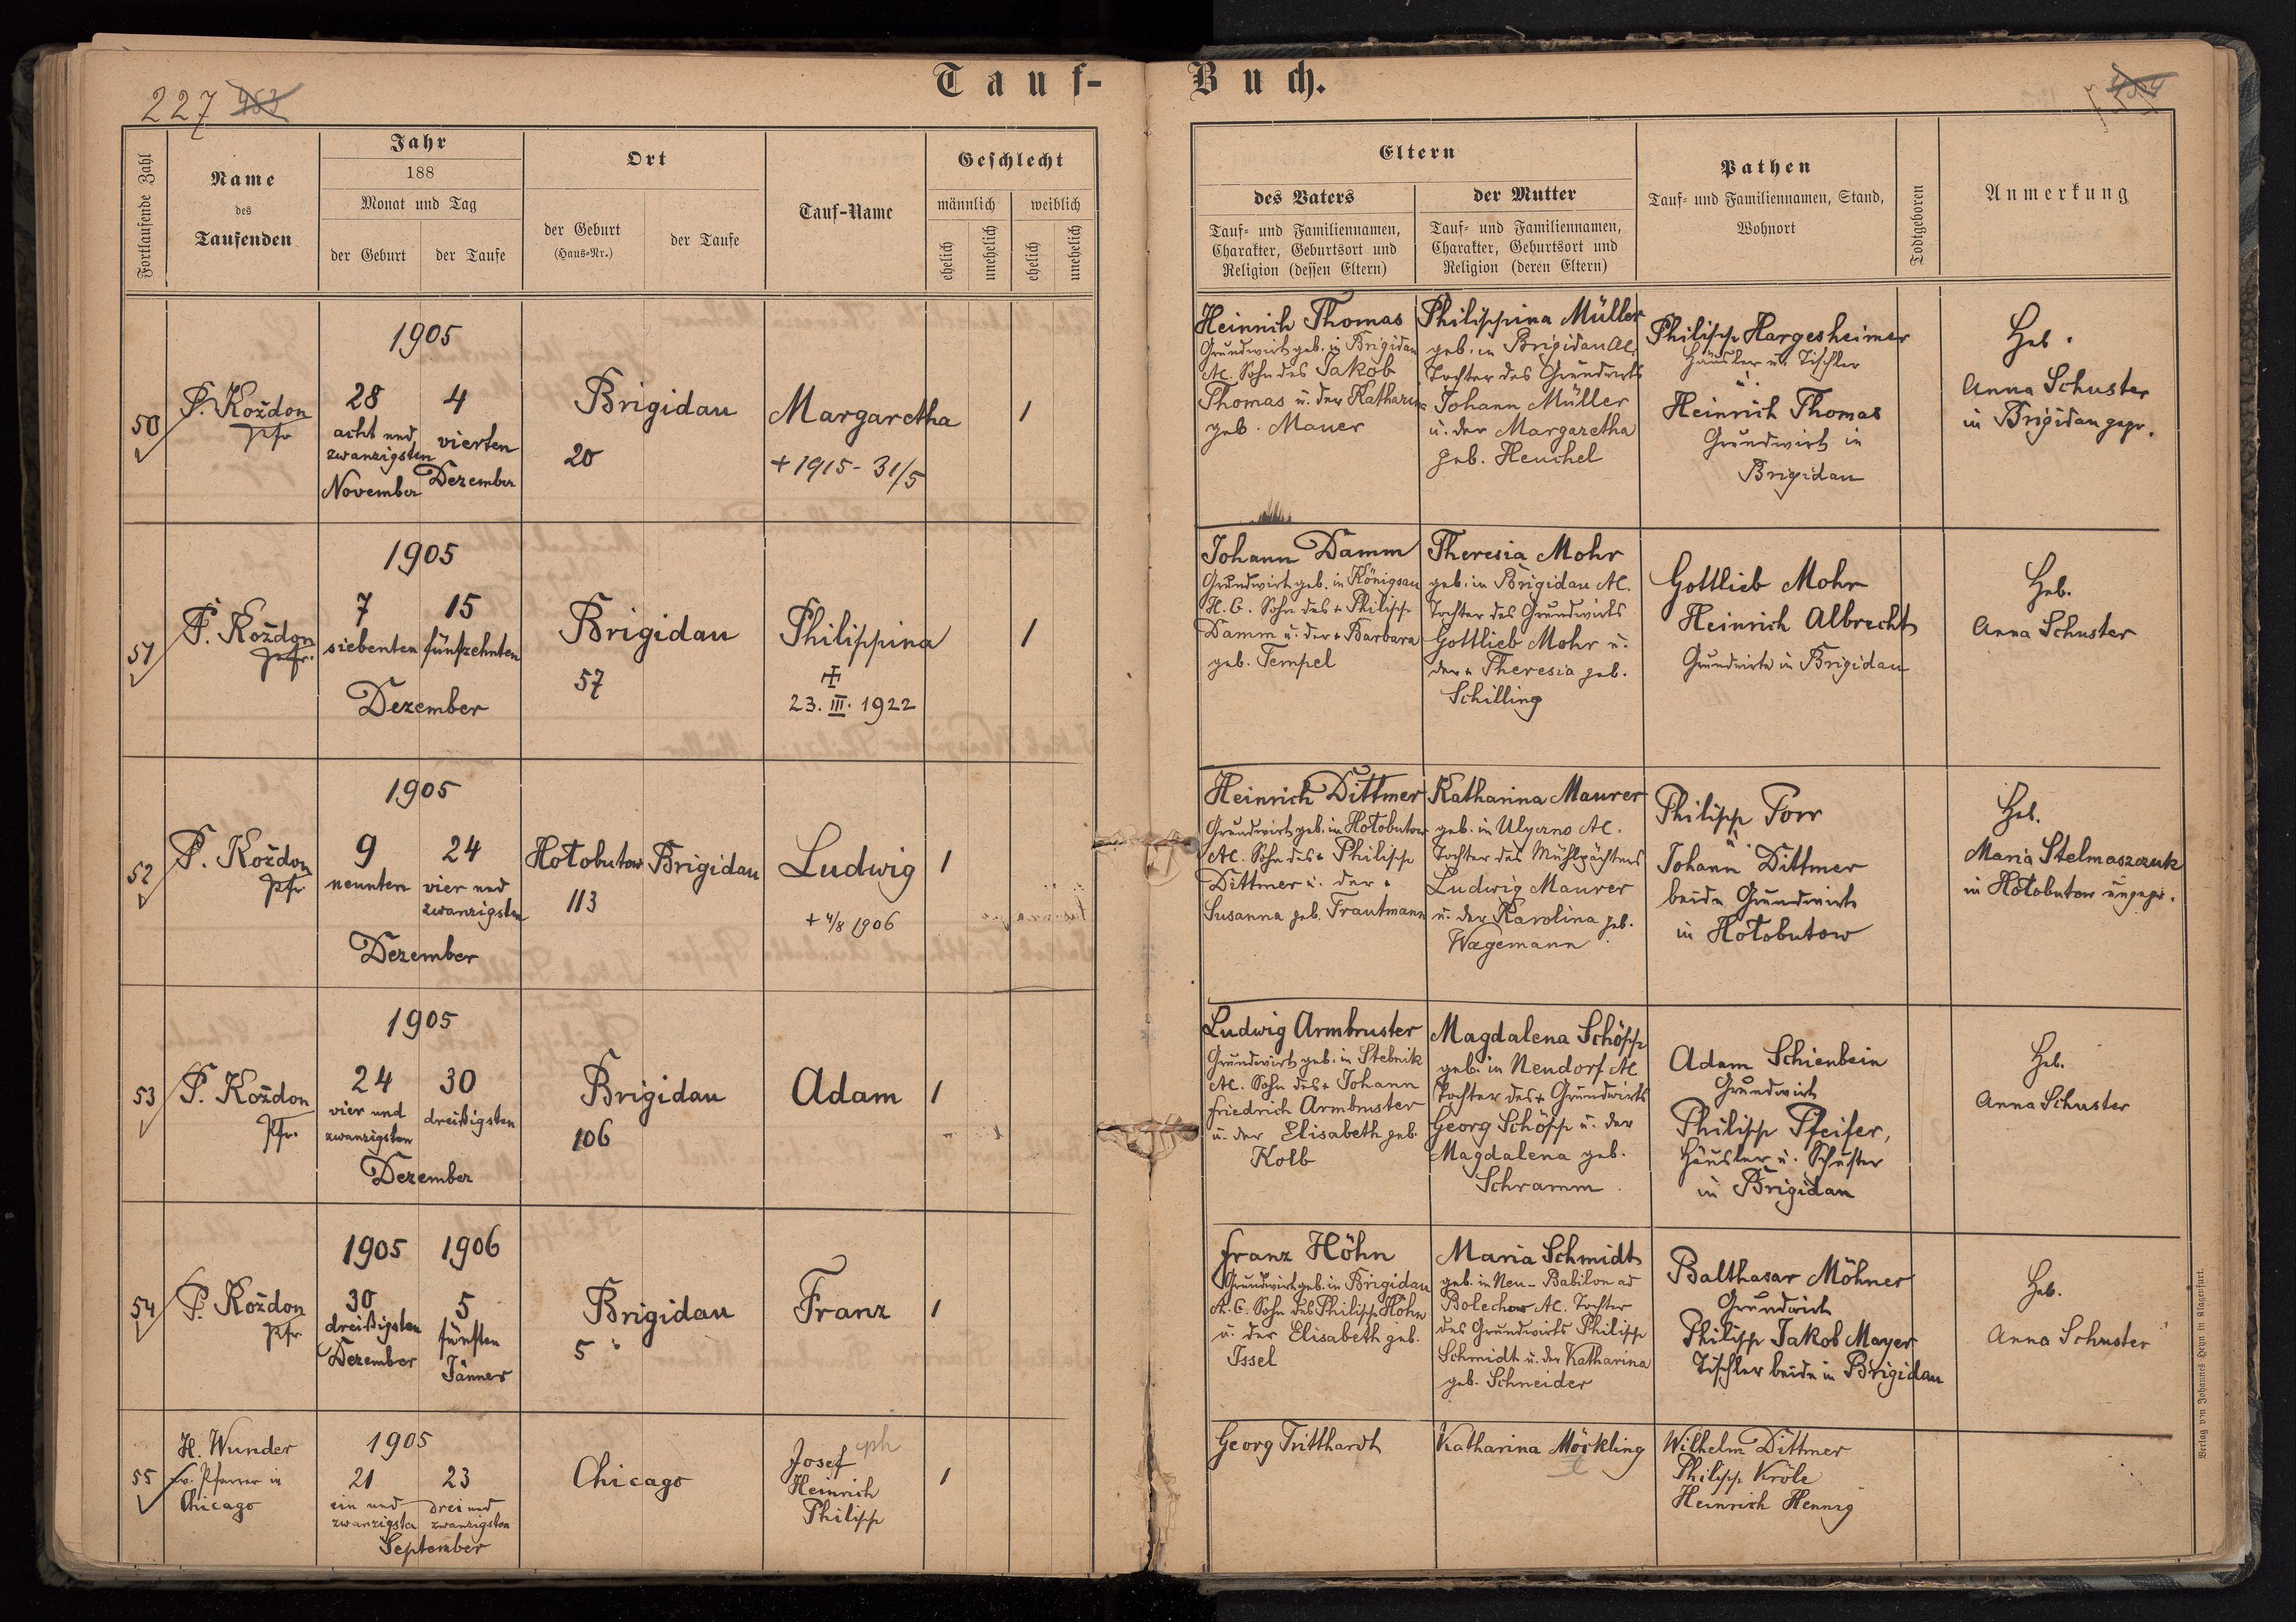 Tauf-Buch.
227 453
454
Fortlaufende Zahl
Name
des
Taufenden
Jahr
188
Monat und Tag
der Geburt
der Taufe
Ort
der Geburt
(Haus-Nr.)
der Taufe
Tauf-Name
Geschlecht
männlich
weiblich
ehelich
unehelich
ehelich
unehelich
Eltern
des Vaters
Tauf- und Familiennamen,
Charakter, Geburtsort und
Religion (dessen Eltern)
der Mutter
Tauf- und Familiennamen,
Charakter, Geburtsort und
Religion (deren Eltern)
Pathen
Tauf- und Familiennamen, Stand,
Wohnort
Todtgeboren
Anmerkung
50
P. Koždon
Pfr
1905
28
acht und
zwanzigsten
November
4
vierten
Dezember
Brigidau
20
Margaretha
+ 1915 - 31/5
1
Heinrich Thomas
Grundwirt geb. in Brigidau
AC. Sohn des Jakob
Thomas u. der Katharina
geb. Mauer
Philippina Müller
geb. in Brigidau AC.
Tochter des Grundwirts
Johann Müller
u. der Margaretha
geb. Heuchel
Philipp Hargesheimer
Häusler u. Tischler
u.
Heinrich Thomas
Grundwirt in
Brigidau
Heb.
Anna Schuster
in Brigidau gepr.
51
P. Koždon
Pfr.
1905
7
siebenten
15
fünfzehnten
Dezember
Brigidau
57
Philippina
23. III. 1922
1
Johann Damm
Grundwirt geb. in Königsau
H.C. Sohn des + Philipp
Damm u. der + Barbara
geb. Tempel
Theresia Mohr
geb. in Brigidau AC.
Tochter des Grundwirts
Gottlieb Mohr u.
der + Theresia geb.
Schilling
Gottlieb Mohr
Heinrich Albrecht
Grundwirte in Brigidau
Heb.
Anna Schuster
52
P. Koždon
Pfr
1905
9
neunten
24
vier und
zwanzigsten
Dezember
Hołobutow
113
Brigidau
Ludwig
+ 4/8 1906
1
Heinrich Dittmer
Grundwirt geb. in Hołobutow
AC. Sohn des + Philipp
Dittmer u. der +
Susanna geb. Trautmann
Katharina Maurer
geb. in Ulyczno AC.
Tochter des Mühlpächters
Ludwig Maurer
u. der Karolina geb.
Wagemann
Philipp Porr
u.
Johann Dittmer
beide Grundwirte
in Hołobutow
Heb.
Maria Stelmaszczuk
in Hołobutow ungepr.
53
P. Koždon
Pfr.
1905
24
vier und
zwanzigsten
30
dreißigsten
Dezember
Brigidau
106
Adam
1
Ludwig Armbruster
Grundwirt geb. in Stebnik
AC. Sohn des + Johann
Friedrich Armbruster
u. der Elisabeth geb.
Kolb
Magdalena Schöpp
geb. in Neudorf AC
Tochter des + Grundwirts
Georg Schöpp u. der
Magdalena geb.
Schramm
Adam Schienbein
Grundwirt
Philipp Pfeifer,
Häusler u. Schuster
in Brigidau
Heb.
Anna Schuster
54
P. Koždon
Pfr
1905
30
dreißigsten
Dezember
1906
5
fünften
Jänner
Brigidau
5
Franz
1
Franz Höhn
Grundwirt geb. in Brigidau
A.C. Sohn des Philipp Höhn
u. der Elisabeth geb.
Issel
Maria Schmidt
geb. in Neu-Babilon ad
Bolechow AC. Tochter
des Grundwirts Philipp
Schmidt u. der Katharina
geb. Schneider
Balthasar Möhner
Grundwirt
Philipp Jakob Mayer
Tischler beide in Brigidau
Heb.
Anna Schuster
55
H. Wunder
ev. Pfarrer in
Chicago
1905
21
ein und
zwanzigsten
23
drei und
zwanzigsten
September
Chicago
Josef ph
Heinrich
Philipp
1
Georg Tritthardt
Katharina Möckling
Wilhelm Dittmer
Philipp Kröle
Heinrich Hennig
Verlag von Johannes Heyn in Klagenfurt.